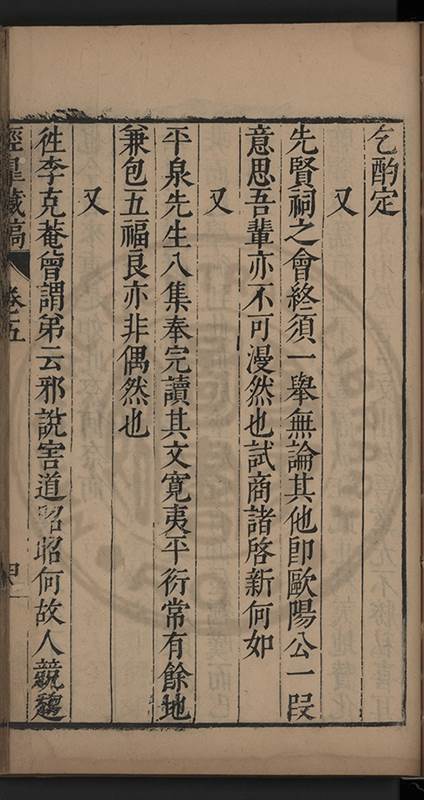 乞酌定
又
先賢祠之會終須一舉無論其他卽歐陽公一段
意思吾輩亦不可漫然也試商諸啓新何如
又
平泉先生八集奉完讀其文寛夷平衍常有餘地
兼包五福良亦非偶然也
又
徃李克菴曾謂弟云邪說害道昭昭何故人競趨
經臯藏稿
卷之五